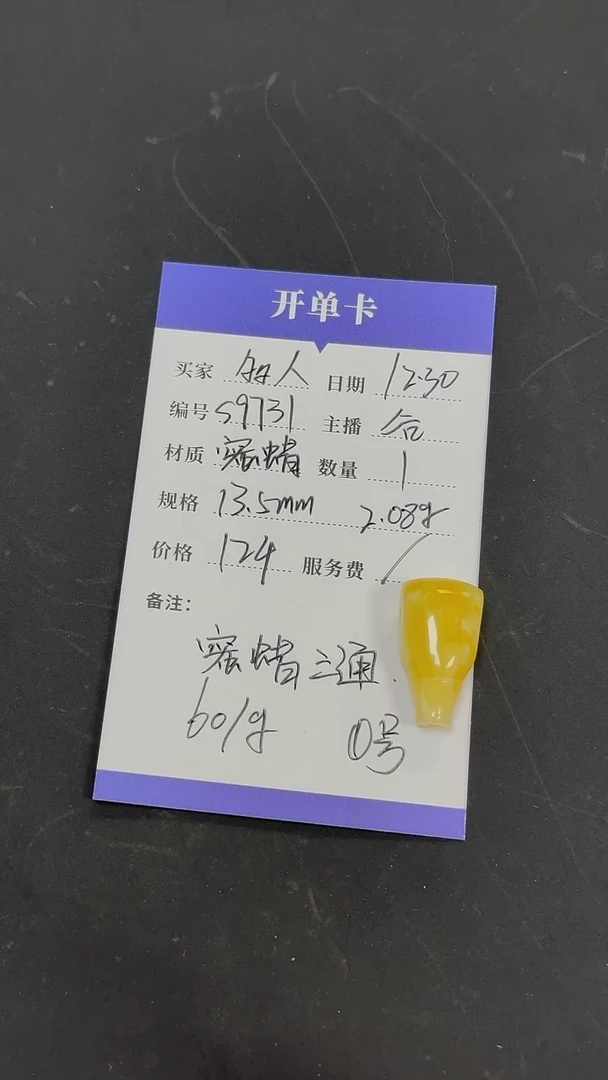 开单卡
买家 人 日期 12.30
编号 S9731 主播 合
材质 蜜蜡 数量 1
规格 13.5mm 2.08g
价格 124 服务费 /
备注：
蜜蜡三通.
60/g 0号